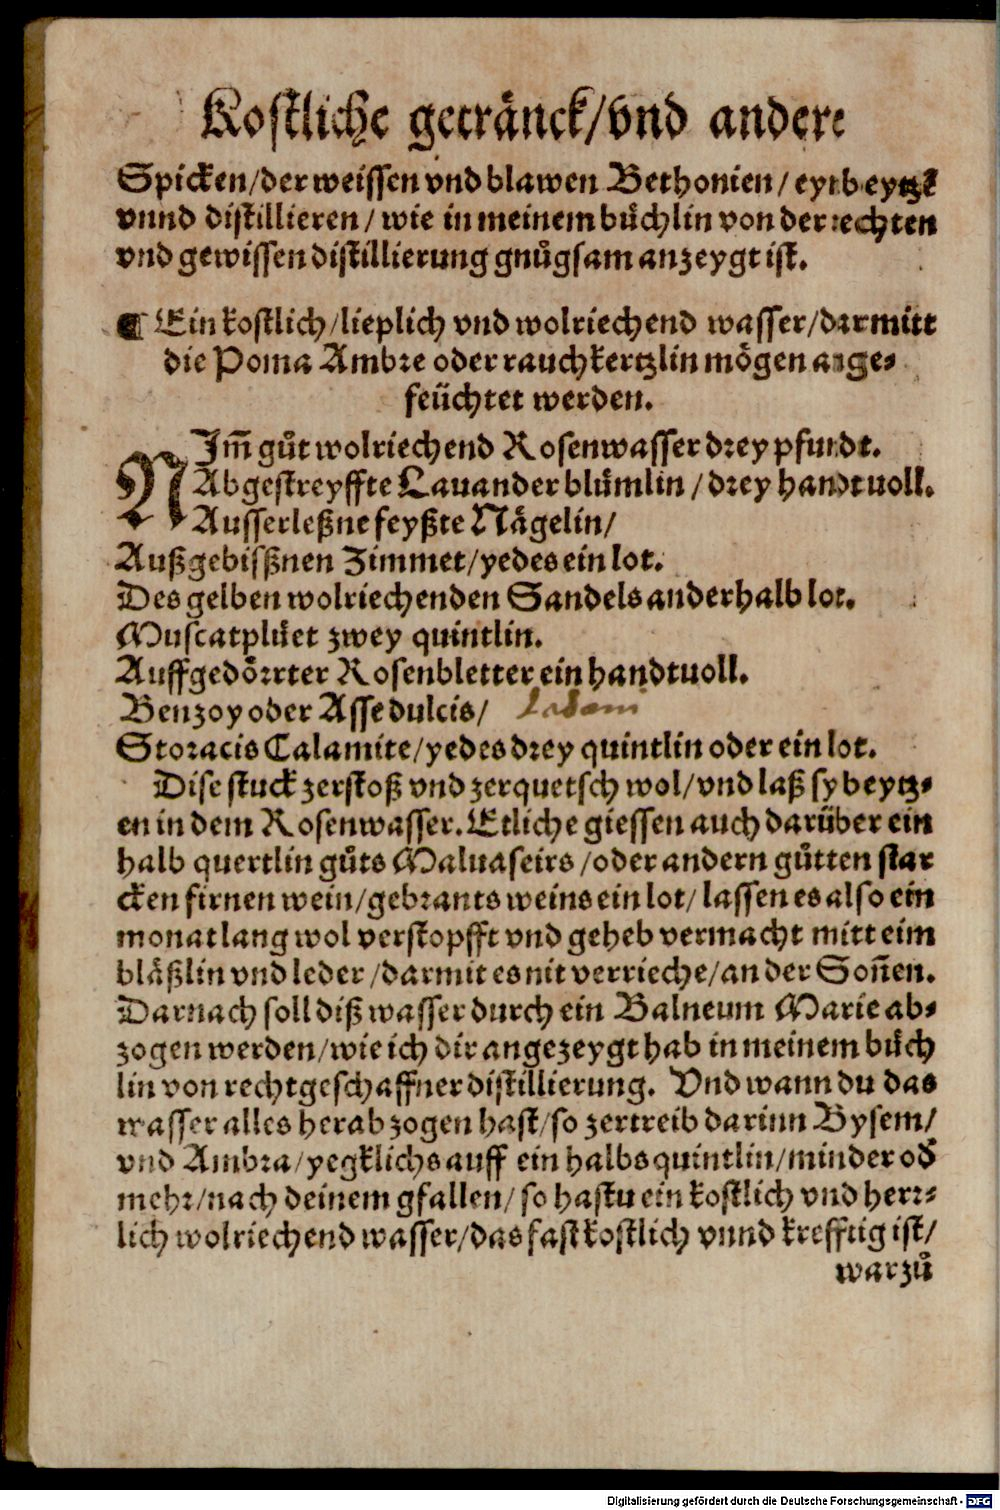 Kostliche getränck/vnd andere
Spicken/der weissen vnd blawen Bethonien/ eynbeytzt
vnnd distillieren/ wie in meinem bůchlin von der rechten
vnd gewissen distillierung gnůgsam anzeygt ist.
¶ Ein kostlich/lieplich vnd wolriechend wasser/darmitt
die Poma Ambre oder rauchkertzlin mögen ange⸗
feüchtet werden.
NIm̃ gůt wolriechend Rosenwasser drey pfundt.
Abgestreyffte Lauander blůmlin/ drey handtuoll.
Ausserleßne feyßte Nägelin/
Außgebisßnen Zimmet/yedes ein lot.
Des gelben wolriechenden Sandels anderhalb lot.
Muscatplüet zwey quintlin.
Auffgedörrter Rosenbletter ein handtuoll.
Benzoy oder Asse dulcis/ Ladani
Storacis Calamite/yedes drey quintlin oder ein lot.
Dise stuck zerstoß vnd zerquetsch wol/vnd laß sy beytz⸗
en in dem Rosenwasser. Etliche giessen auch darüber ein
halb quertlin gůts Maluaseirs/oder andern gůtten star
cken firnen wein/gebrants weins ein lot/ lassen es also ein
monat lang wol verstopfft vnd geheb vermacht mitt eim
bläßlin vnd leder/darmit es nit verrieche/an der Soñen.
Darnach soll diß wasser durch ein Balneum Marie ab⸗
zogen werden/wie ich dir angezeygt hab in meinem bůch
lin von rechtgeschaffner distillierung. Vnd wann du das
wasser alles herab zogen hast/so zertreib darinn Bysem/
vnd Ambra/yegklichs auff ein halbs quintlin/minder od̕
mehr/nach deinem gfallen/ so hastu ein kostlich vnd herr⸗
lich wolriechend wasser/das fast kostlich vnnd krefftig ist/
warzů
Digitalisierung gefördert durch die Deutsche Forschungsgemeinschaft - DFG